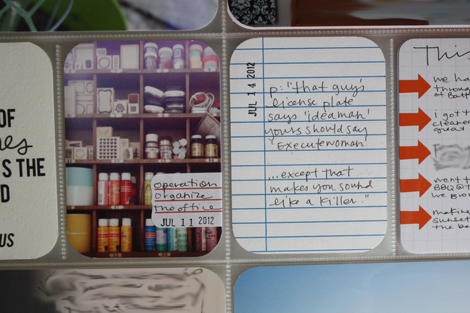 OF
S THE
D
US
operation
organize
the office
JUL 11 2012
JUL 14 2012
p: "that guy's
license plate
says 'ideaman'
yours should say
'executewoman'
...except that
makes you sound
like a killer."
This
we ha
through
at Batt
i got t
cleared
went t
BBQ@t
we bro
making
sunset
the be